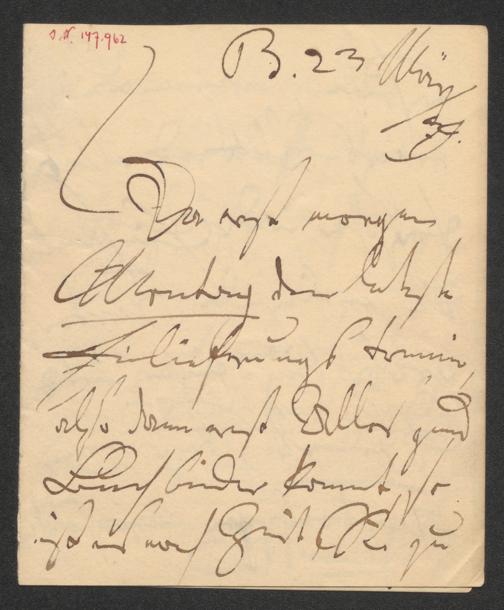 I.N. 197.962
B. 23 März
Da erst morgen
Montag der letzte
Einlieferungstermin,
also dann erst Alles zum
Buchbinder kommt, so
ist es noch Zeit, R. zu